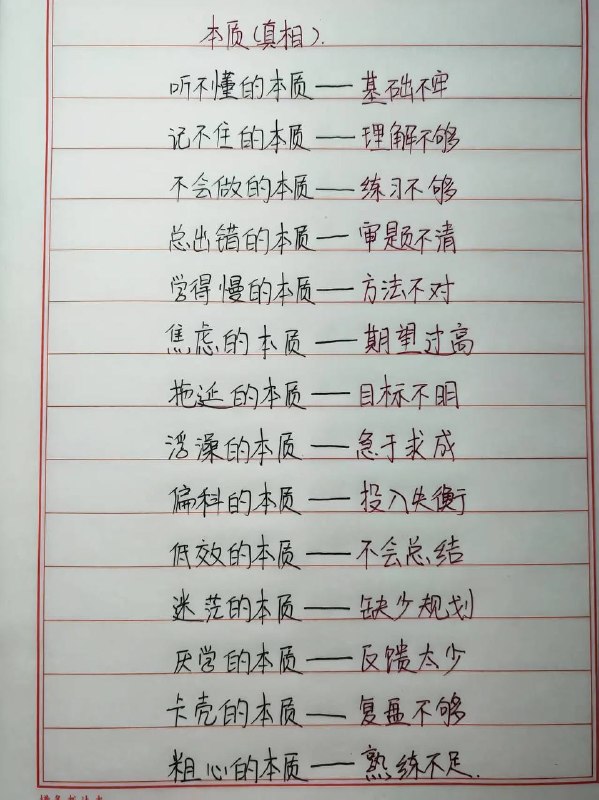 本质(真相).
听不懂的本质——基础不牢
记不住的本质——理解不够
不会做的本质——练习不够
总出错的本质——审题不清
学得慢的本质——方法不对
焦虑的本质——期望过高
拖延的本质——目标不明
浮澡的本质——急于求成
偏科的本质——投入失衡
低效的本质——不会总结
迷茫的本质——缺少规划
厌学的本质——反馈太少
卡壳的本质——复盘不够
粗心的本质——熟练不足.